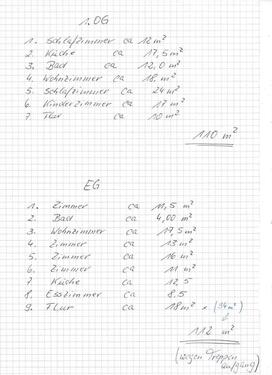 1. OG
1. Schlafzimmer ca 12 m²
2. Küche ca 17,5 m²
3. Bad ca 12,0 m²
4. Wohnzimmer ca 18, m²
5. Schlafzimmer ca 24 m²
6. Kinderzimmer ca 17 m²
7. Flur ca 10 m²
110 m²
EG
1. Zimmer ca 11,5 m²
2. Bad ca 4,00 m²
3. Wohnzimmer ca 17,5 m²
4. Zimmer ca 13 m²
5. Zimmer ca 16 m²
6. Zimmer ca 11 m²
7. Küche ca 12,5
8. Esszimmer ca 8,5
9. Flur ca 18 m² x
112 m²
(wegen Treppen